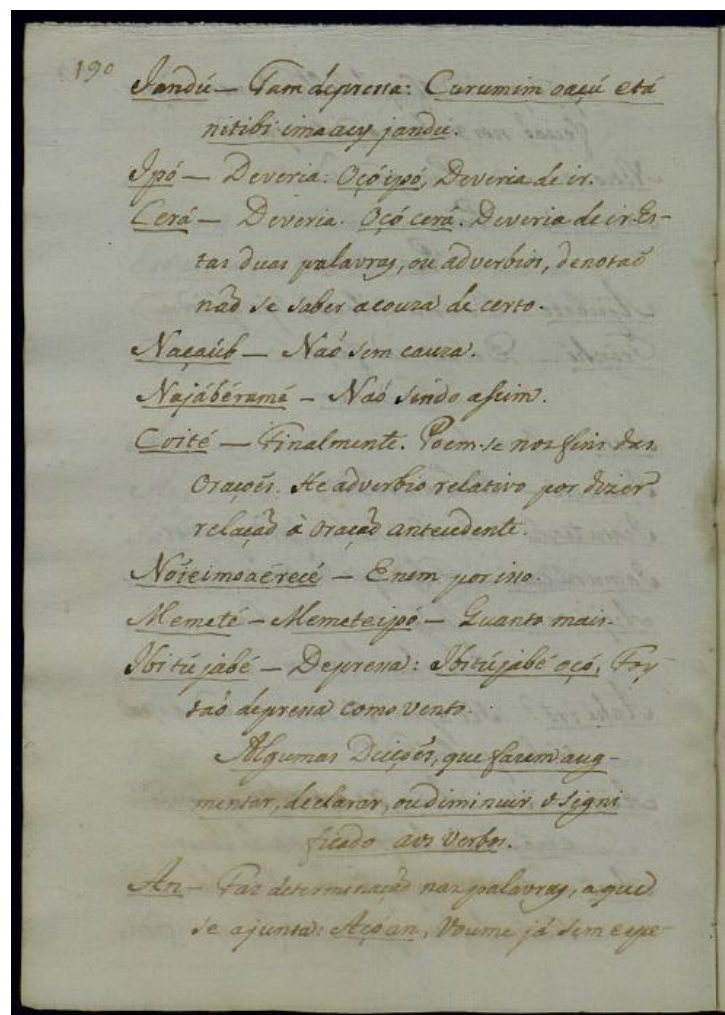 190
Jandú — Tam depressa: Curumim oaçú etá
nitibi imaacy jandú.
Ipó — Deveria: Oçó ipó, Deveria de ir.
Cerá — Deveria. Oçó cerá. Deveria de ir. Es-
tas duas palavras, ou adverbios, denotaõ
naõ se saber a couza de certo.
Naçaúb — Naõ sem cauza.
Najábéramé — Naõ sendo assim.
Coité — Finalmente. Poem-se nos fins das
Oraçoẽs. He adverbio relativo por dizer
relaçaõ à Oraçaõ antecedente.
Nóíeimoaérecé — E nem por isso.
Memeté — Memeteipó — Quanto mais.
Ibitújabé — Depressa: Ibitújabé oçó, Foy
taõ depressa como vento.
Algumas Dicçoẽs, que fazem aug-
mentar, declarar, ou diminuir o signi
ficado aos Verbos.
An — Faz determinaçaõ nas palavras, a que
se ajunta: Açó an, Voume já sem espe-